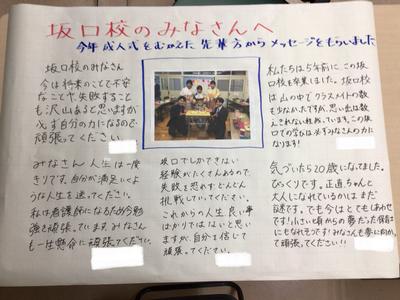 坂口校のみなさんへ
今年成人式をむかえた先輩方からメッセージをもらいました
坂口校のみなさん
今は将来のことで不安
なことや、失敗すること
も沢山あると思いますが
必ず自分の力になるので
頑張ってください
私たちは5年前に、この坂
口校を卒業しました。坂口校
は山の中でクラスメイトの数
も少なかたですが、思い出は数
えきれない程ぬています。この坂
口での学びは必ずみなさんの力に
なります!
みなさん 人生は一度
きりです。自分が満足いく
ような人生を送ってください。
私は看護師になるため今勉
強を頑張っています。みなさん
も一生懸命に頑張ってください。
坂口でしかできない
経験がたくさんあるので、
失敗を恐れず、どんどん
挑戦していってください。
これからの人生良い事
ばかりではないと思い
ますが、自分を信じて
頑張ってください。
気づいたら20歳になってました。
びっくりです。正直ちゃんと
大人になれているかはまだ
謎です。でも今はとてもしあわせ
です!小さい頃からの夢だった保育士
にもなれそうです!みなさんも夢に向かっ
て頑張てください!!